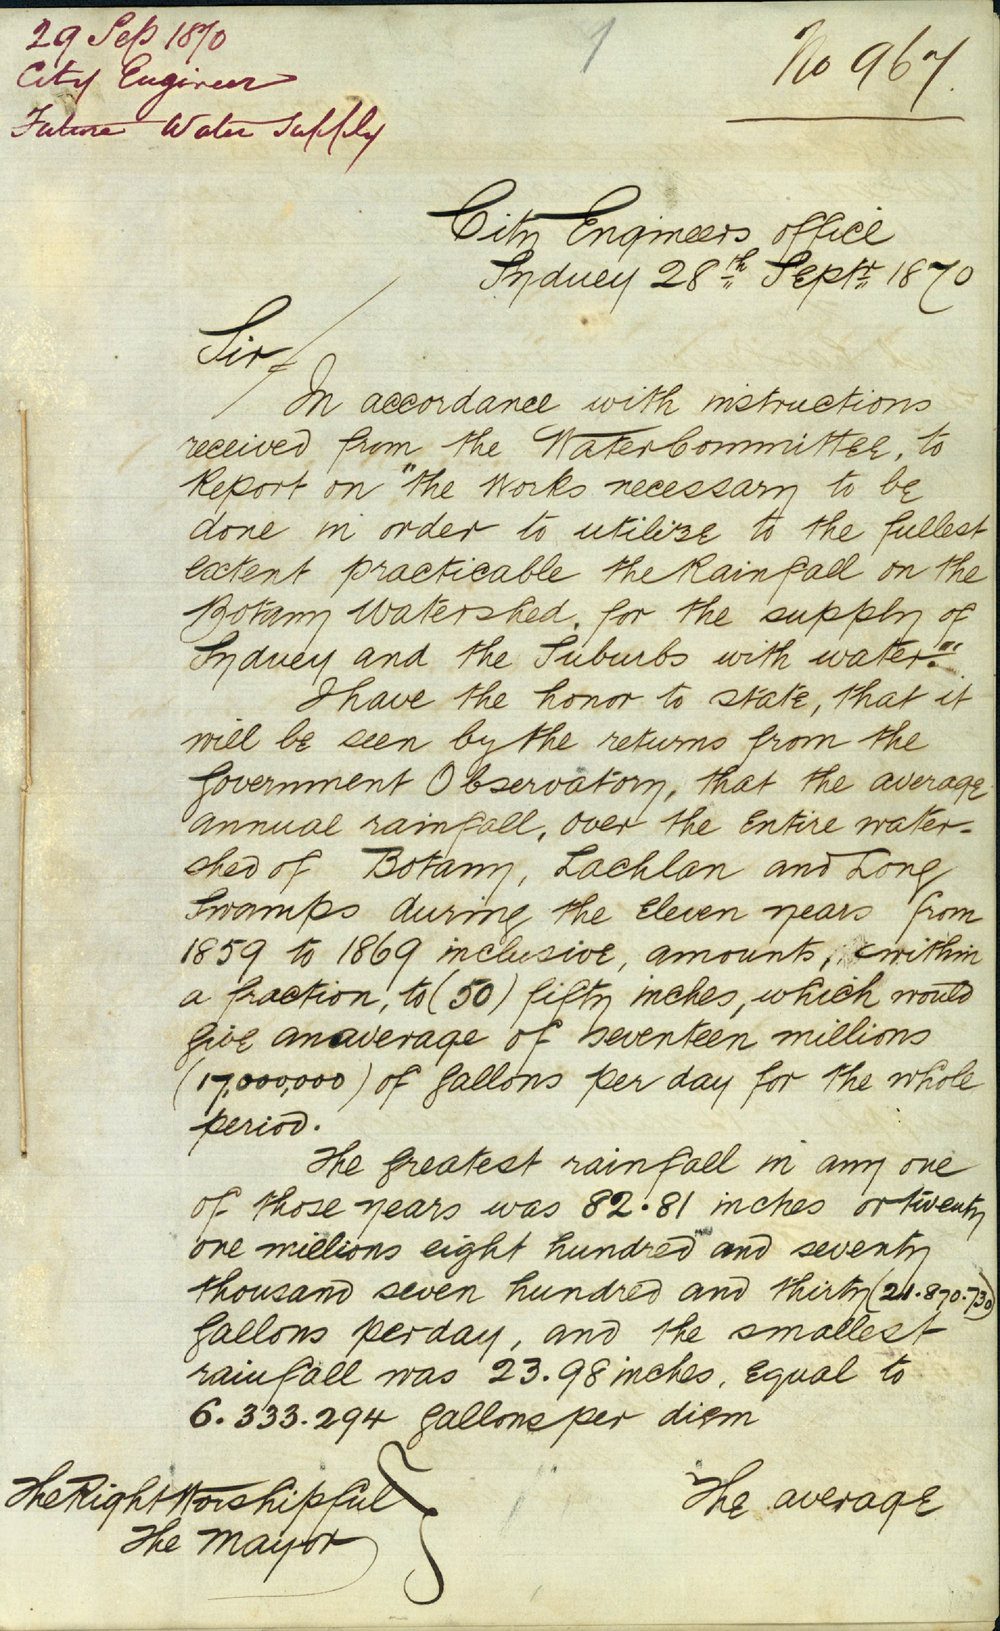 29 Sep 1870
City Engineer
Future Water Supply
1
No 967.
City Engineers office
Sydney 28th Septr 1870
Sir
In accordance with instructions
received from the Water Committee, to
Report on "the Works necessary to be
done in order to utilize to the fullest
extent practicable the Rainfall on the
Botany Watershed, for the supply of
Sydney and the Suburbs with water."
I have the honor to state, that it
will be seen by the returns from the
Government Observatory, that the average
annual rainfall, over the Entire water-
shed of Botany, Lachlan and Long
Swamps during the Eleven years from
1859 to 1869 inclusive, amounts, within
a fraction, to (50) fifty inches, which would
give an average of seventeen millions
(17,000,000) of gallons per day for the whole
period.
The greatest rainfall in any one
of those years was 82.81 inches or twenty
one millions eight hundred and seventy
thousand seven hundred and thirty (21.870.730)
Gallons per day, and the smallest
rainfall was 23.98 inches, Equal to
6.333.294 gallons per diem
The Right Worshipful
The Mayor
The average